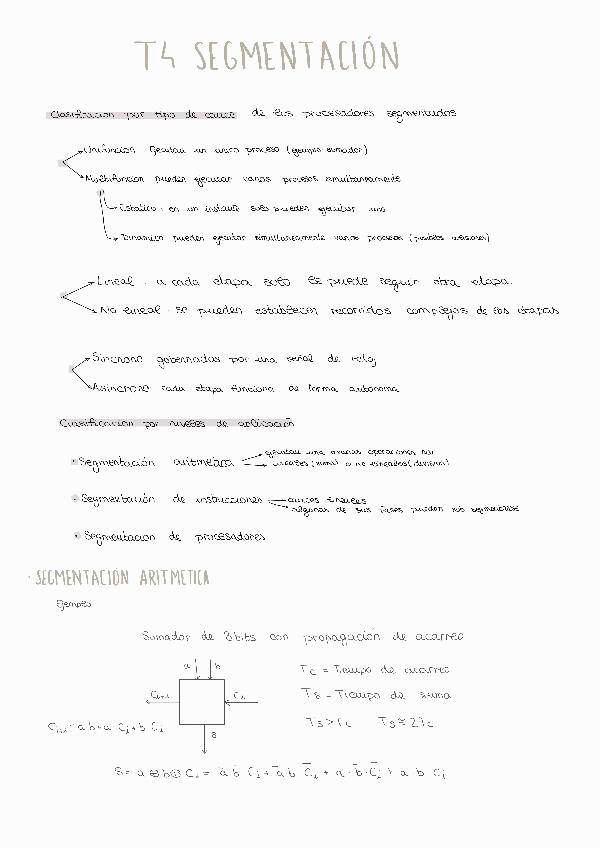 T4 SEGMENTACIÓN
Clasificación por tipo de cauce de los procesadores segmentados
Unifunción: Ejecutan un único proceso (ejemplo sumador)
Multifunción pueden ejecutar varios procesos simultáneamente
Estático: en un instante solo pueden ejecutar uno
Dinámico pueden ejecutar simultáneamente varios procesos
Lineal: a cada etapa solo le puede seguir otra etapa.
No lineal: se pueden establecer recorridos complejos de las etapas
Síncrono gobernadas por una señal de reloj
Asíncrono cada etapa funciona de forma autónoma
Clasificación por niveles de aplicación
• Segmentación aritmética
ejecutan una o varias operaciones
lineales (suma) o no lineales (división)
• Segmentación de instrucciones
cauces lineales
algunas de sus fases pueden ser segmentadas
• Segmentación de procesadores
· SEGMENTACIÓN ARITMETICA
Ejemplo
Sumador de 8 bits con propagación de acarreo
a b
Tc = Tiempo de acarreo
Ci+1 Ci
Ts = Tiempo de suma
Ci+1 = a·b + a Ci + b Ci
Ts > Tc Ts ≅ 2Tc
S
S = a ⊕ b ⊕ Ci = a̅ b̅ Ci + a̅ b C̅i + a · b̅ · C̅i + a b Ci